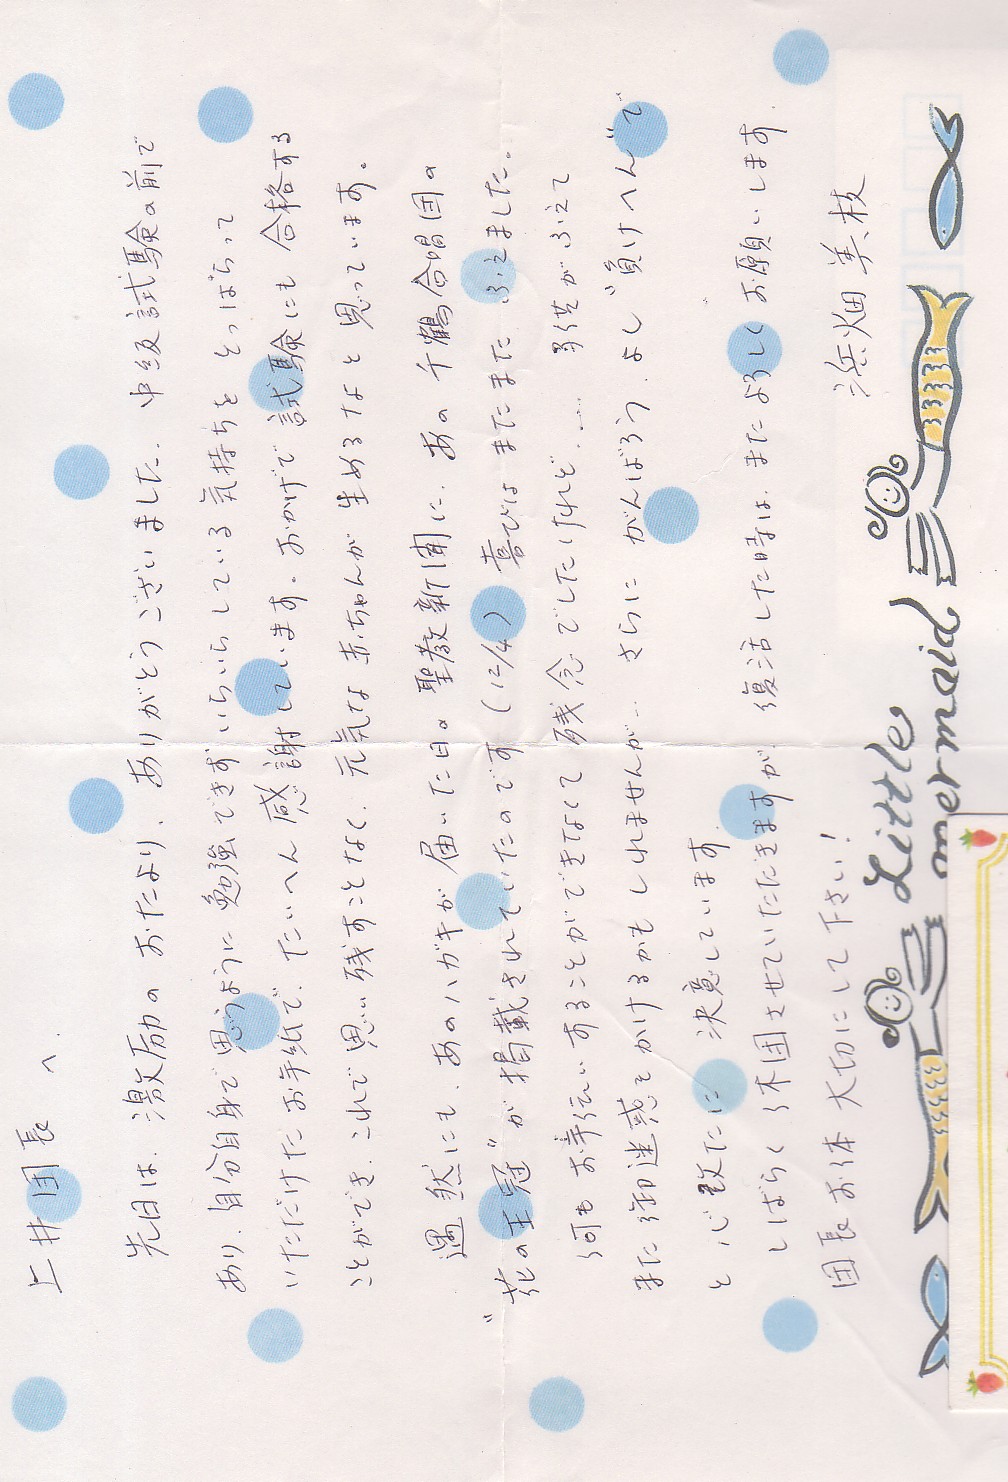 上井団長へ
先日は、激励のおたより、ありがとうございました。中級試験の前で
あり、自分自身で思うように勉強できずいらいらしている気持ちをとっぱらって
いただけたお手紙で、たいへん感謝しています。おかげで試験にも合格する
ことができ、これで思い残すことなく、元気な赤ちゃんが生めるなと思っています。
遇然にも、あのハガキが届いた日の聖教新聞に、あの千鶴合唱団の
“花の王冠”が掲載されていたのです(12/4)喜びはまたまたふえました。
何もお手伝いすることができなくて残念でしたけれど……子供がふえて
また御迷惑をかけるかもしれませんが…さらにがんばろう、よし“負けへん”で
と心改たに決意しています。
しばらく休団させていただきますが、復活した時は、またよろしくお願いします。
団長お体大切にして下さい!
浜畑美枝
Little
mermaid